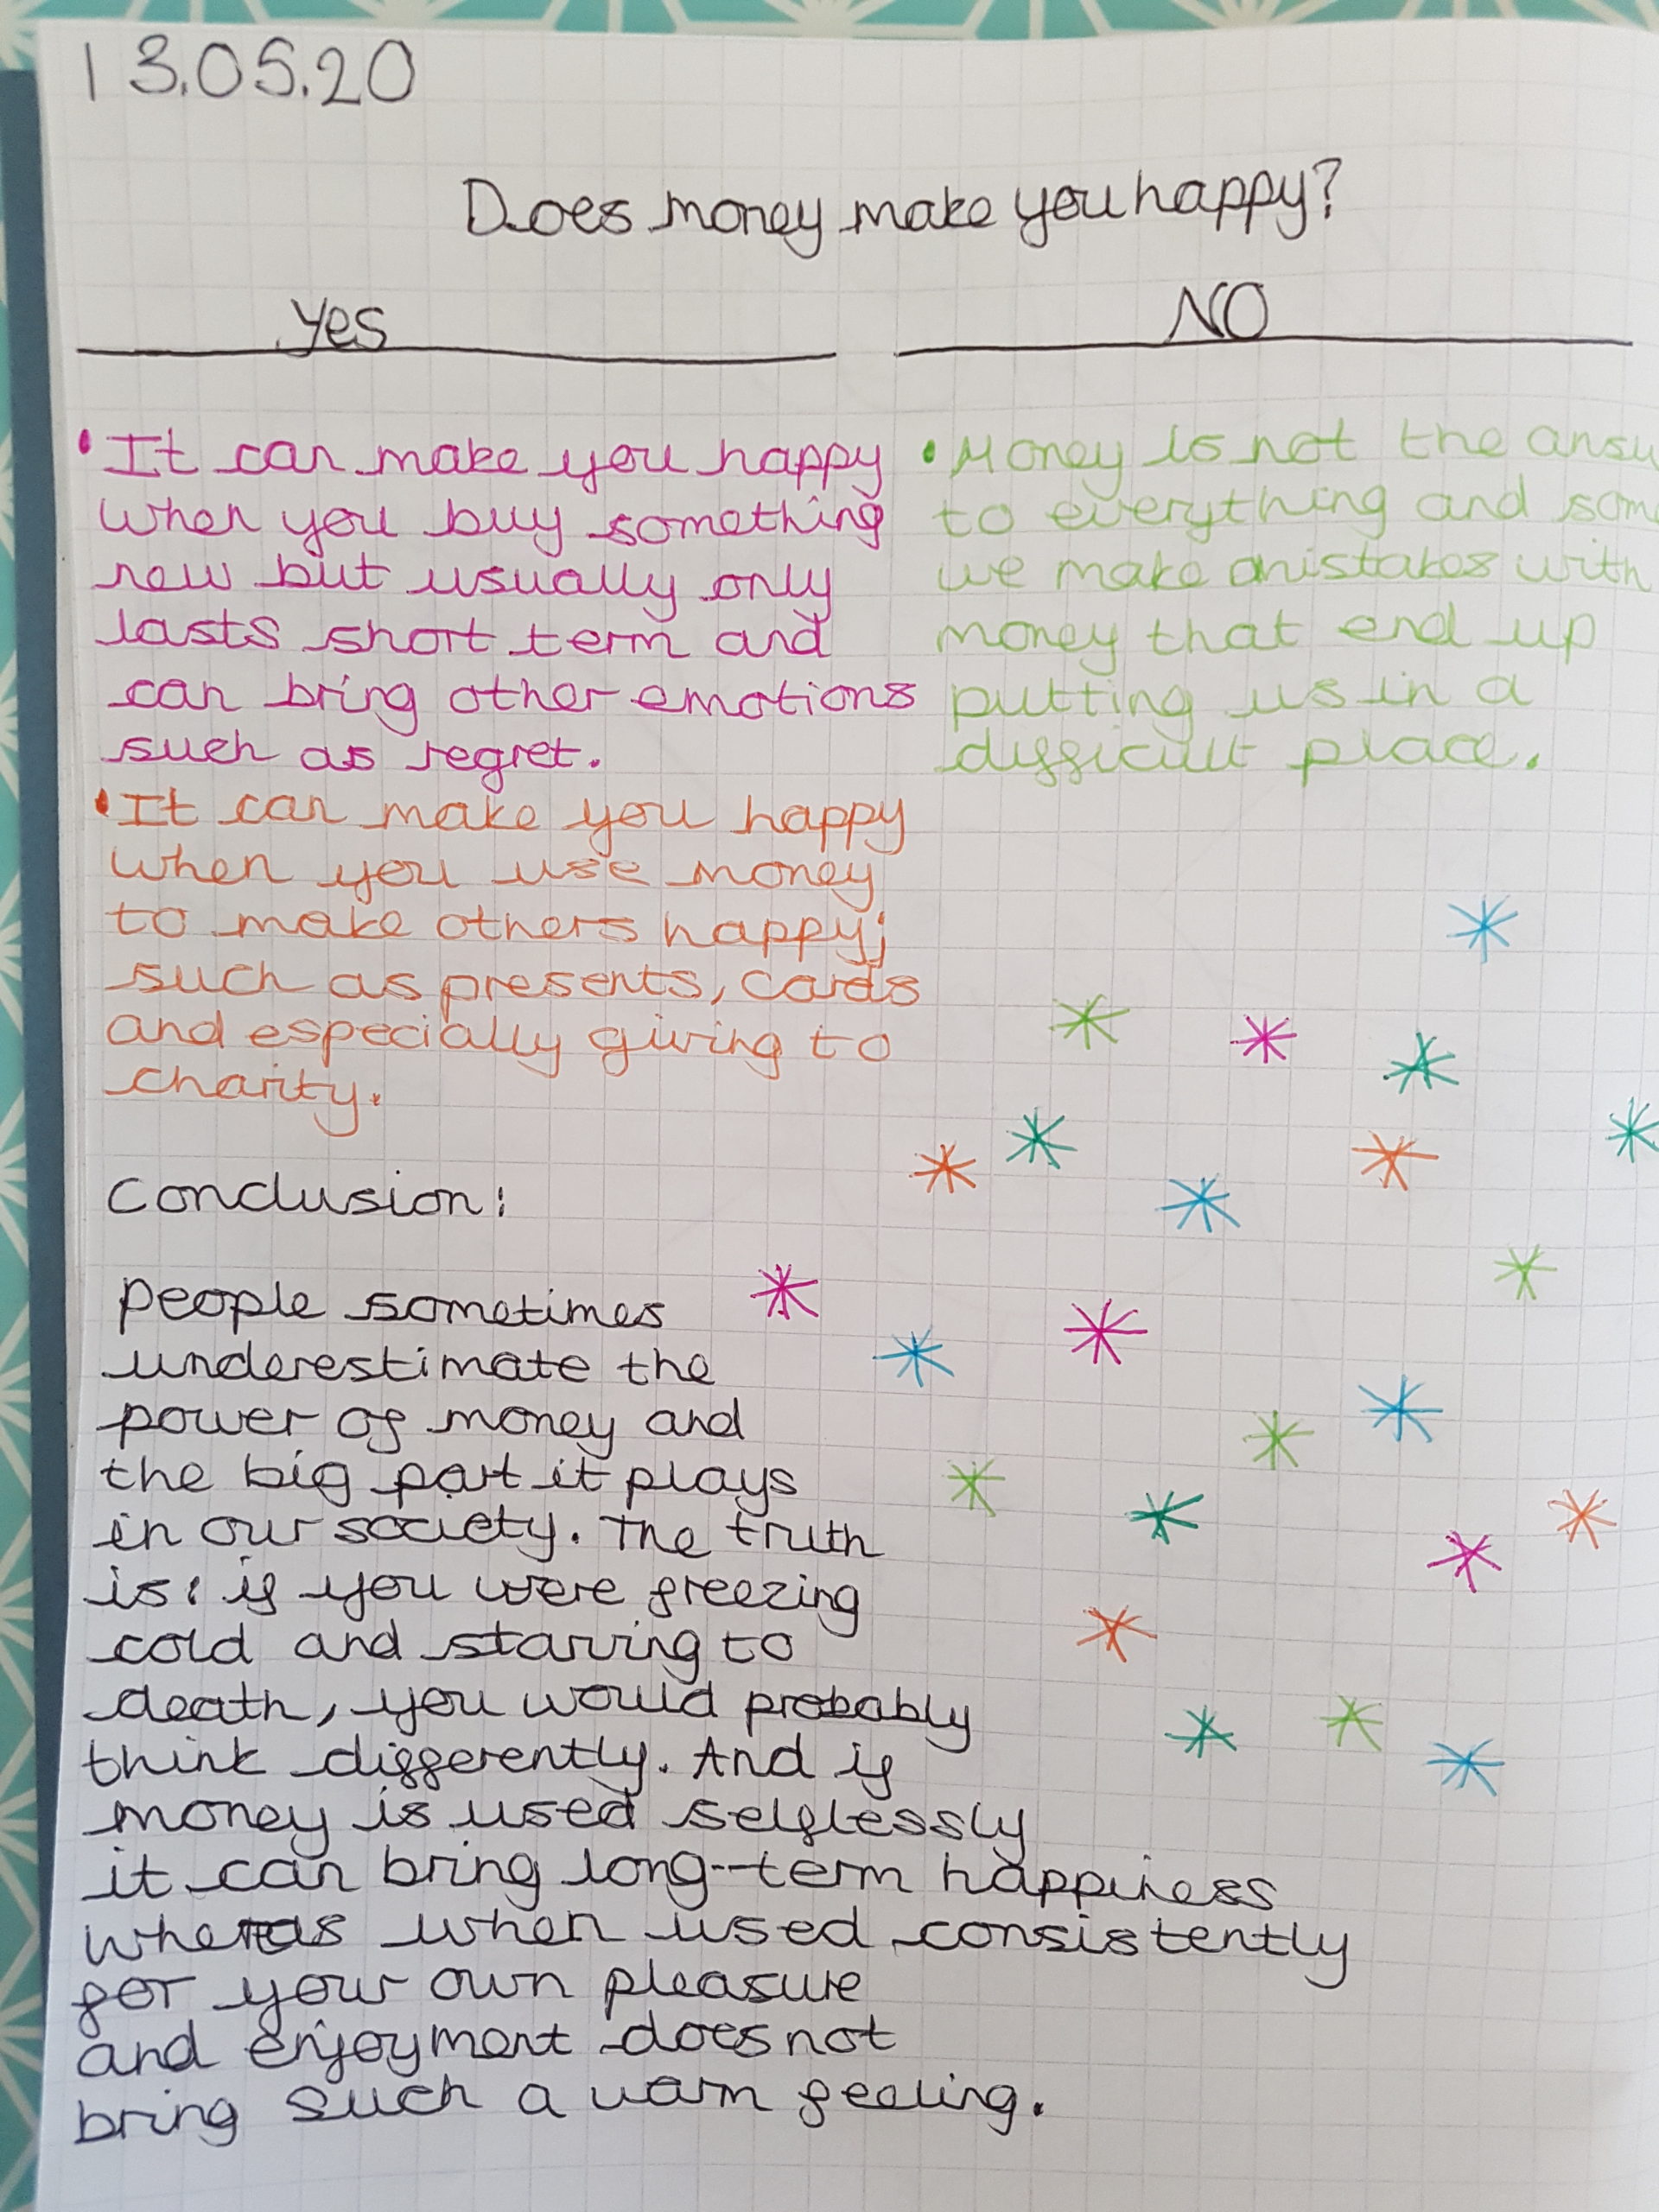 13.05.20
Does money make you happy?
Yes
NO
• It can make you happy
when you buy something
new but usually only
lasts short term and
can bring other emotions
such as regret.
• It can make you happy
when you use money
to make others happy;
such as presents, cards
and especially giving to
charity.
• Money is not the
to everything and
we make mistakes with
money that end up
putting us in a
difficult place.
Conclusion:
People sometimes
underestimate the
power of money and
the big part it plays
in our society. The truth
is: if you were freezing
cold and starving to
death, you would probably
think differently. And if
money is used selflessly
it can bring long-term happiness
whereas when used consistently
for your own pleasure
and enjoyment does not
bring such a warm feeling.